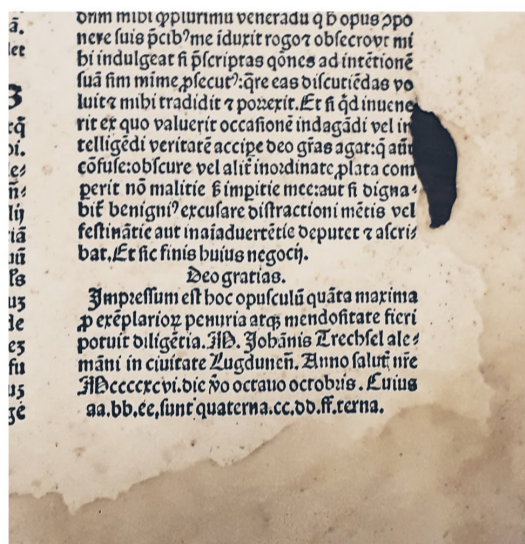 dnm mihi q̄pplurimū venerādū q̇ h̄ opus ꝯpo
nere suis p̄cibꝰ me īduxit rogo ⁊ obsecro vt mi
hi indulgeat si p̄scriptas q̄ones ad intētionē
suā fim mīme ꝓsecutꝰ: q̄re eas discutiēdas vo
luit ⁊ mihi tradidit ⁊ porrexit. Et si q̇d inuene
rit ex quo valuerit occasionē indagādi vel in
telligēdi veritatē accipe deo gr̄as agat: q̄ aūt
cōfuse: obscure vel alit̄ inordinate ꝓlata com
perit nō malitie s̄ impitie mee: aut si digna⸗
bit̄ benigniꝰ excusare distractioni mētis vel
festinātie aut inaīaduertētie deputet ⁊ ascri⸗
bat. Et sic finis huius negocij.
Deo gratias.
Impressum est hoc opusculū quāta maxima
ꝓ exēplarioꝝ penuria atqꝫ mendositate fieri
potuit diligētia. M. Johānis Trechsel ale⸗
māni in ciuitate Lugdunen̄. Anno salut̄ nr̄e
Mccccxcvi. die v̊o octauo octobris. Cuius
aa.bb.ee, sunt quaterna. cc.dd.ff. terna.